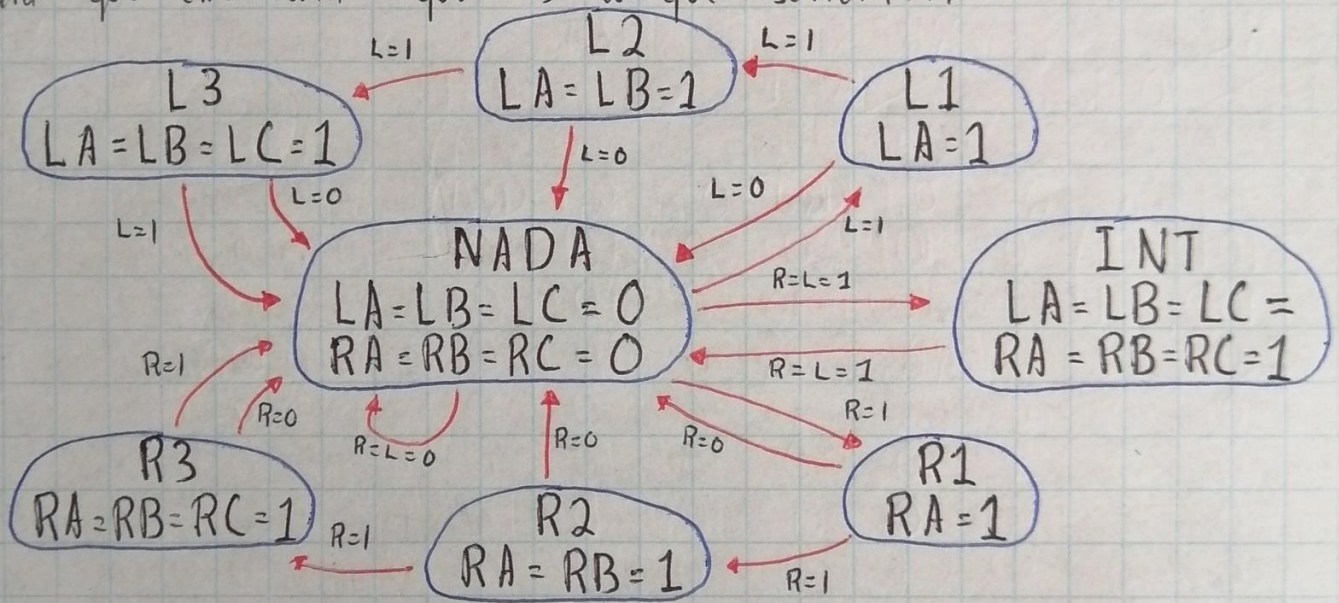 L2
LA = LB = 1
L=1
L=1
L3
LA = LB = LC = 1
L1
LA = 1
L=0
L=0
L=0
L=1
L=1
NADA
LA = LB = LC = 0
RA = RB = RC = 0
R=L=1
R=L=1
INT
LA = LB = LC =
RA = RB = RC = 1
R=1
R=0
R=L=0
R=0
R=0
R=1
R3
RA = RB = RC = 1
R1
RA = 1
R=1
R2
RA = RB = 1
R=1